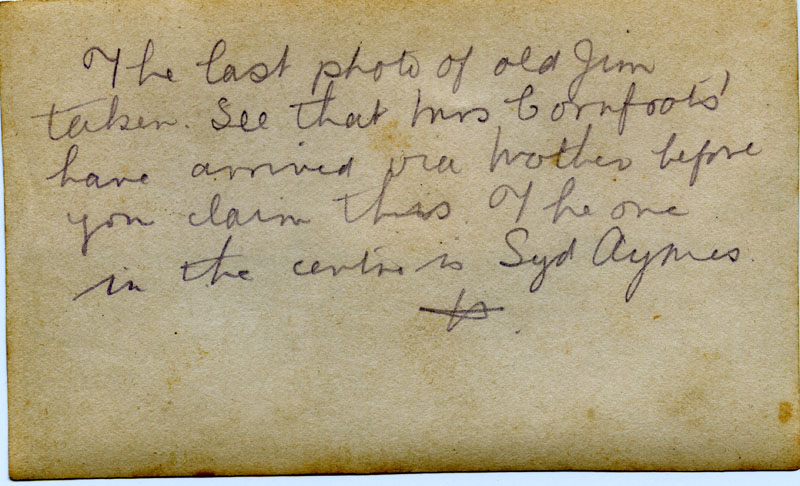 The last photo of old Jim
taken. See that Mrs Cornfoots'
have arrived via Mother before
you claim this. The one
in the centre is Syd Aymes.